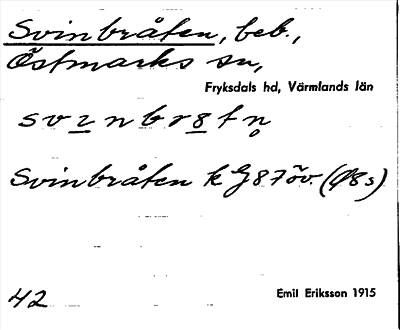 Svinbråten, beb.,
Östmarks sn,
Fryksdals hd, Värmlands län
svɪnbr8tn̥
Svinbråten k G87öv. (Ø8s)
42
Emil Eriksson 1915